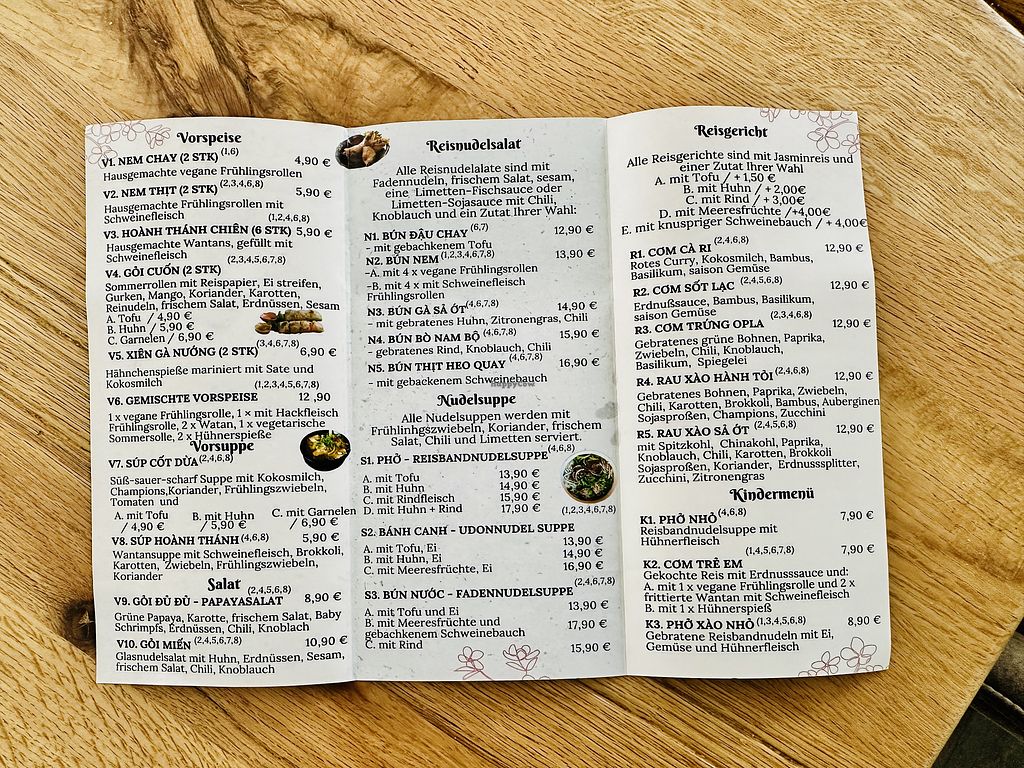 Vorspeise
V1. NEM CHAY (2 STK) (1,6) 4,90 €
Hausgemachte vegane Frühlingsrollen
V2. NEM THỊT (2 STK) (2,3,4,6,8) 5,90 €
Hausgemachte Frühlingsrollen mit
Schweinefleisch (1,2,4,6,8)
V3. HOÀNH THÁNH CHIÊN (6 STK) 5,90 €
Hausgemachte Wantans, gefüllt mit
Schweinefleisch (2,3,4,5,7,8)
V4. GỎI CUỐN (2 STK)
Sommerrollen mit Reispapier, Ei streifen,
Gurken, Mango, Koriander, Karotten,
Reinudeln, frischem Salat, Erdnüssen, Sesam
A. Tofu / 4,90 €
B. Huhn / 5,90 €
C. Garnelen / 6,90 €
(3,4,6,7,8)
V5. XIÊN GÀ NƯỚNG (2 STK) 6,90 €
Hähnchenspieße mariniert mit Sate und
Kokosmilch (1,2,3,4,5,6,7,8)
V6. GEMISCHTE VORSPEISE 12 ,90
1 x vegane Frühlingsrolle, 1 x mit Hackfleisch
Frühlingsrolle, 2 x Watan, 1 x vegetarische
Sommerolle, 2 x Hühnerspieße
Vorsuppe
V7. SÚP CỐT DỪA (2,4,6,8)
Süß-sauer-scharf Suppe mit Kokosmilch,
Champions,Koriander, Frühlingszwiebeln,
Tomaten und
A. mit Tofu B. mit Huhn C. mit Garnelen
/ 4,90 € / 5,90 € / 6,90 €
V8. SÚP HOÀNH THÁNH (4,6,8) 5,90 €
Wantansuppe mit Schweinefleisch, Brokkoli,
Karotten, Zwiebeln, Frühlingszwiebeln,
Koriander
Salat
(2,4,5,6,8)
V9. GỎI ĐỦ ĐỦ - PAPAYASALAT 8,90 €
Grüne Papaya, Karotte, frischem Salat, Baby
Schrimpfs, Erdnüssen, Chili, Knoblach
V10. GỎI MIẾN (2,4,5,6,7,8) 10,90 €
Glasnudelsalat mit Huhn, Erdnüssen, Sesam,
frischem Salat, Chili, Knoblauch
Reisnudelsalat
Alle Reisnudelalate sind mit
Fadennudeln, frischem Salat, sesam,
eine Limetten-Fischsauce oder
Limetten-Sojasauce mit Chili,
Knoblauch und ein Zutat Ihrer Wahl:
N1. BÚN ĐẬU CHAY (6,7) 12,90 €
- mit gebachkenem Tofu
N2. BÚN NEM (1,2,3,4,6,7,8) 13,90 €
-A. mit 4 x vegane Frühlingsrollen
-B. mit 4 x mit Schweinefleisch
Frühlingsrollen
N3. BÚN GÀ SẢ ỚT (4,6,7,8) 14,90 €
- mit gebratenes Huhn, Zitronengras, Chili
N4. BÚN BÒ NAM BỘ (4,6,7,8) 15,90 €
- gebratenes Rind, Knoblauch, Chili
N5. BÚN THỊT HEO QUAY (4,6,7,8) 16,90 €
- mit gebackenem Schweinebauch
happycow
Nudelsuppe
Alle Nudelsuppen werden mit
Frühlinhgszwiebeln, Koriander, frischem
Salat, Chili und Limetten serviert.
S1. PHỞ - REISBANDNUDELSUPPE (4,6,8)
A. mit Tofu 13,90 €
B. mit Huhn 14,90 €
C. mit Rindfleisch 15,90 €
D. mit Huhn + Rind 17,90 €
(1,2,3,4,6,7,8)
S2. BÁNH CANH - UDONNUDEL SUPPE
A. mit Tofu, Ei 13,90 €
B. mit Huhn, Ei 14,90 €
C. mit Meeresfrüchte, Ei 16,90 €
(2,4,6,7,8)
S3. BÚN NƯỚC - FADENNUDELSUPPE
A. mit Tofu und Ei 13,90 €
B. mit Meeresfrüchte und
gebachkenem Schweinebauch 17,90 €
C. mit Rind 15,90 €
Reisgericht
Alle Reisgerichte sind mit Jasminreis und
einer Zutat Ihrer Wahl
A. mit Tofu / + 1,50 €
B. mit Huhn / + 2,00€
C. mit Rind / + 3,00€
D. mit Meeresfrüchte /+4,00€
E. mit knuspriger Schweinebauch / + 4,00€
(2,4,6,8)
R1. CƠM CÀ RI 12,90 €
Rotes Curry, Kokosmilch, Bambus,
Basilikum, saison Gemüse
R2. CƠM SỐT LẠC (2,4,5,6,8) 12,90 €
Erdnußsauce, Bambus, Basilikum,
saison Gemüse (2,3,4,6,8)
R3. CƠM TRỨNG OPLA 12,90 €
Gebratenes grüne Bohnen, Paprika,
Zwiebeln, Chili, Knoblauch,
Basilikum, Spiegelei
R4. RAU XÀO HÀNH TỎI (2,4,6,8) 12,90 €
Gebratenes Bohnen, Paprika, Zwiebeln,
Chili, Karotten, Brokkoli, Bambus, Auberginen
Sojasproßen, Champions, Zucchini
R5. RAU XÀO SẢ ỚT (2,4,5,6,8) 12,90 €
mit Spitzkohl, Chinakohl, Paprika,
Knoblauch, Chili, Karotten, Brokkoli
Sojasproßen, Koriander, Erdnussplitter,
Zucchini, Zitronengras
Kindermenü
K1. PHỞ NHỎ (4,6,8) 7,90 €
Reisbandnudelsuppe mit
Hühnerfleisch
(1,4,5,6,7,8) 7,90 €
K2. CƠM TRẺ EM
Gekochte Reis mit Erdnusssauce und:
A. mit 1 x vegane Frühlingsrolle und 2 x
frittierte Wantan mit Schweinefleisch
B. mit 1 x Hühnerspieß
K3. PHỞ XÀO NHỎ (1,3,4,5,6,8) 8,90 €
Gebratene Reisbandnudeln mit Ei,
Gemüse und Hühnerfleisch